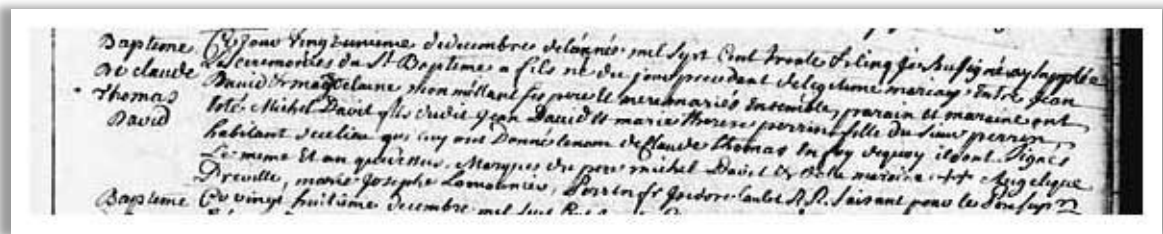 Baptême Ce Jour vingt unième de decembre de l'année mil Sept Cent trente et Cinq je Soussigné ay Supplée
De claude les ceremonies du St Baptême a fils né du jour precedent de legitime mariage Entre Jean
Thomas David Et magdelaine monmellian ses pere et mere mariés Ensemble, parain et maraine ont
David été Michel David fils dudit Jean David et marie therese perrin fille du Sieur perrin
habitant de ce lieu qui luy ont Donné le nom de Claude thomas En foy de quoy ils ont Signés
Le meme Et an que dessus. Marques du pere michel David Et De la maraine ++ Angelique
Dreville, marie Josephe Lamounier, Perrin fr Isidore Caulet R.R. faisant pour le
Baptême Ce vingt huitième decembre mil Sept